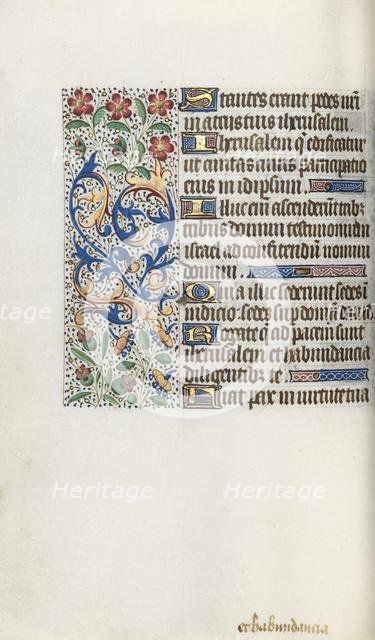 Stantes erant pedes nr̃i
in atriis tuis iherusalem.
Iherusalem q̃ edificatur
ut ciuitas cuius participatio
eius in idipsum.
Illuc em̃ ascenderunt tribꝰ
tribus domini testimonium
israel ad confitendum nomini
domini.
Quia illuc sederunt sedes in
iudicio: sedes sup̃ domum da
Rogate q̃ ad pacem sunt
iherusalem et habundancia
diligentibꝰ te.
Fiat pax in uirtute tua
Heritage Heritage
Heritage Heritage
et habundancia